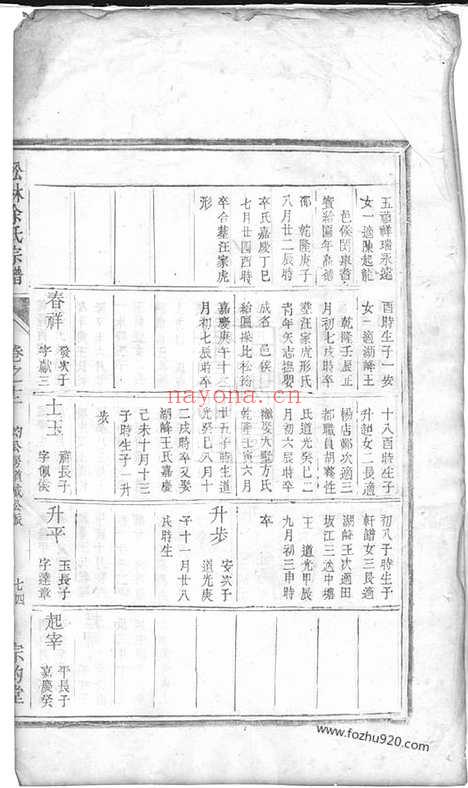 五福祥瑞永遠
女一適陳起龍
邑侯閔東晋
賞給匾年高德
邵 乾隆庚子
八月廿二辰時
卒氏嘉慶丁巳
七月廿四酉時
卒合墓汪家虎
形
酉時生子一安
女二適湖
王
乾隆壬辰正
月初七戌時卒
墓汪家虎形氏
青年矢志撫孤
成名 邑侯
給匾
比松筠
嘉慶庚午十二
月初七辰時卒
春祥 發次子
字獻三
十八酉時生子
升起女二長適
楊店鄭次適三
都職員胡
性
氏道光
月初六辰時卒
繼娶大
方氏
乾隆壬寅六月
廿五子時生道
光癸巳八月十
二戌時卒又娶
湖
王氏嘉慶
己未十月十三
子時生子一升
步
士玉 祥長子
字佩侯
初八子時生子
軒諧女三長適
湖
王次適田
坂江三适中壋
王 道光甲辰
九月初三申時
卒
升步 安次子
道光庚
午十一月廿八
氏時生
升平 玉長子
字達章
起宰 平長子
嘉慶癸
松林余氏宗譜
卷之三
七四
宗約堂
nayona.cn
www.fozhu920.com